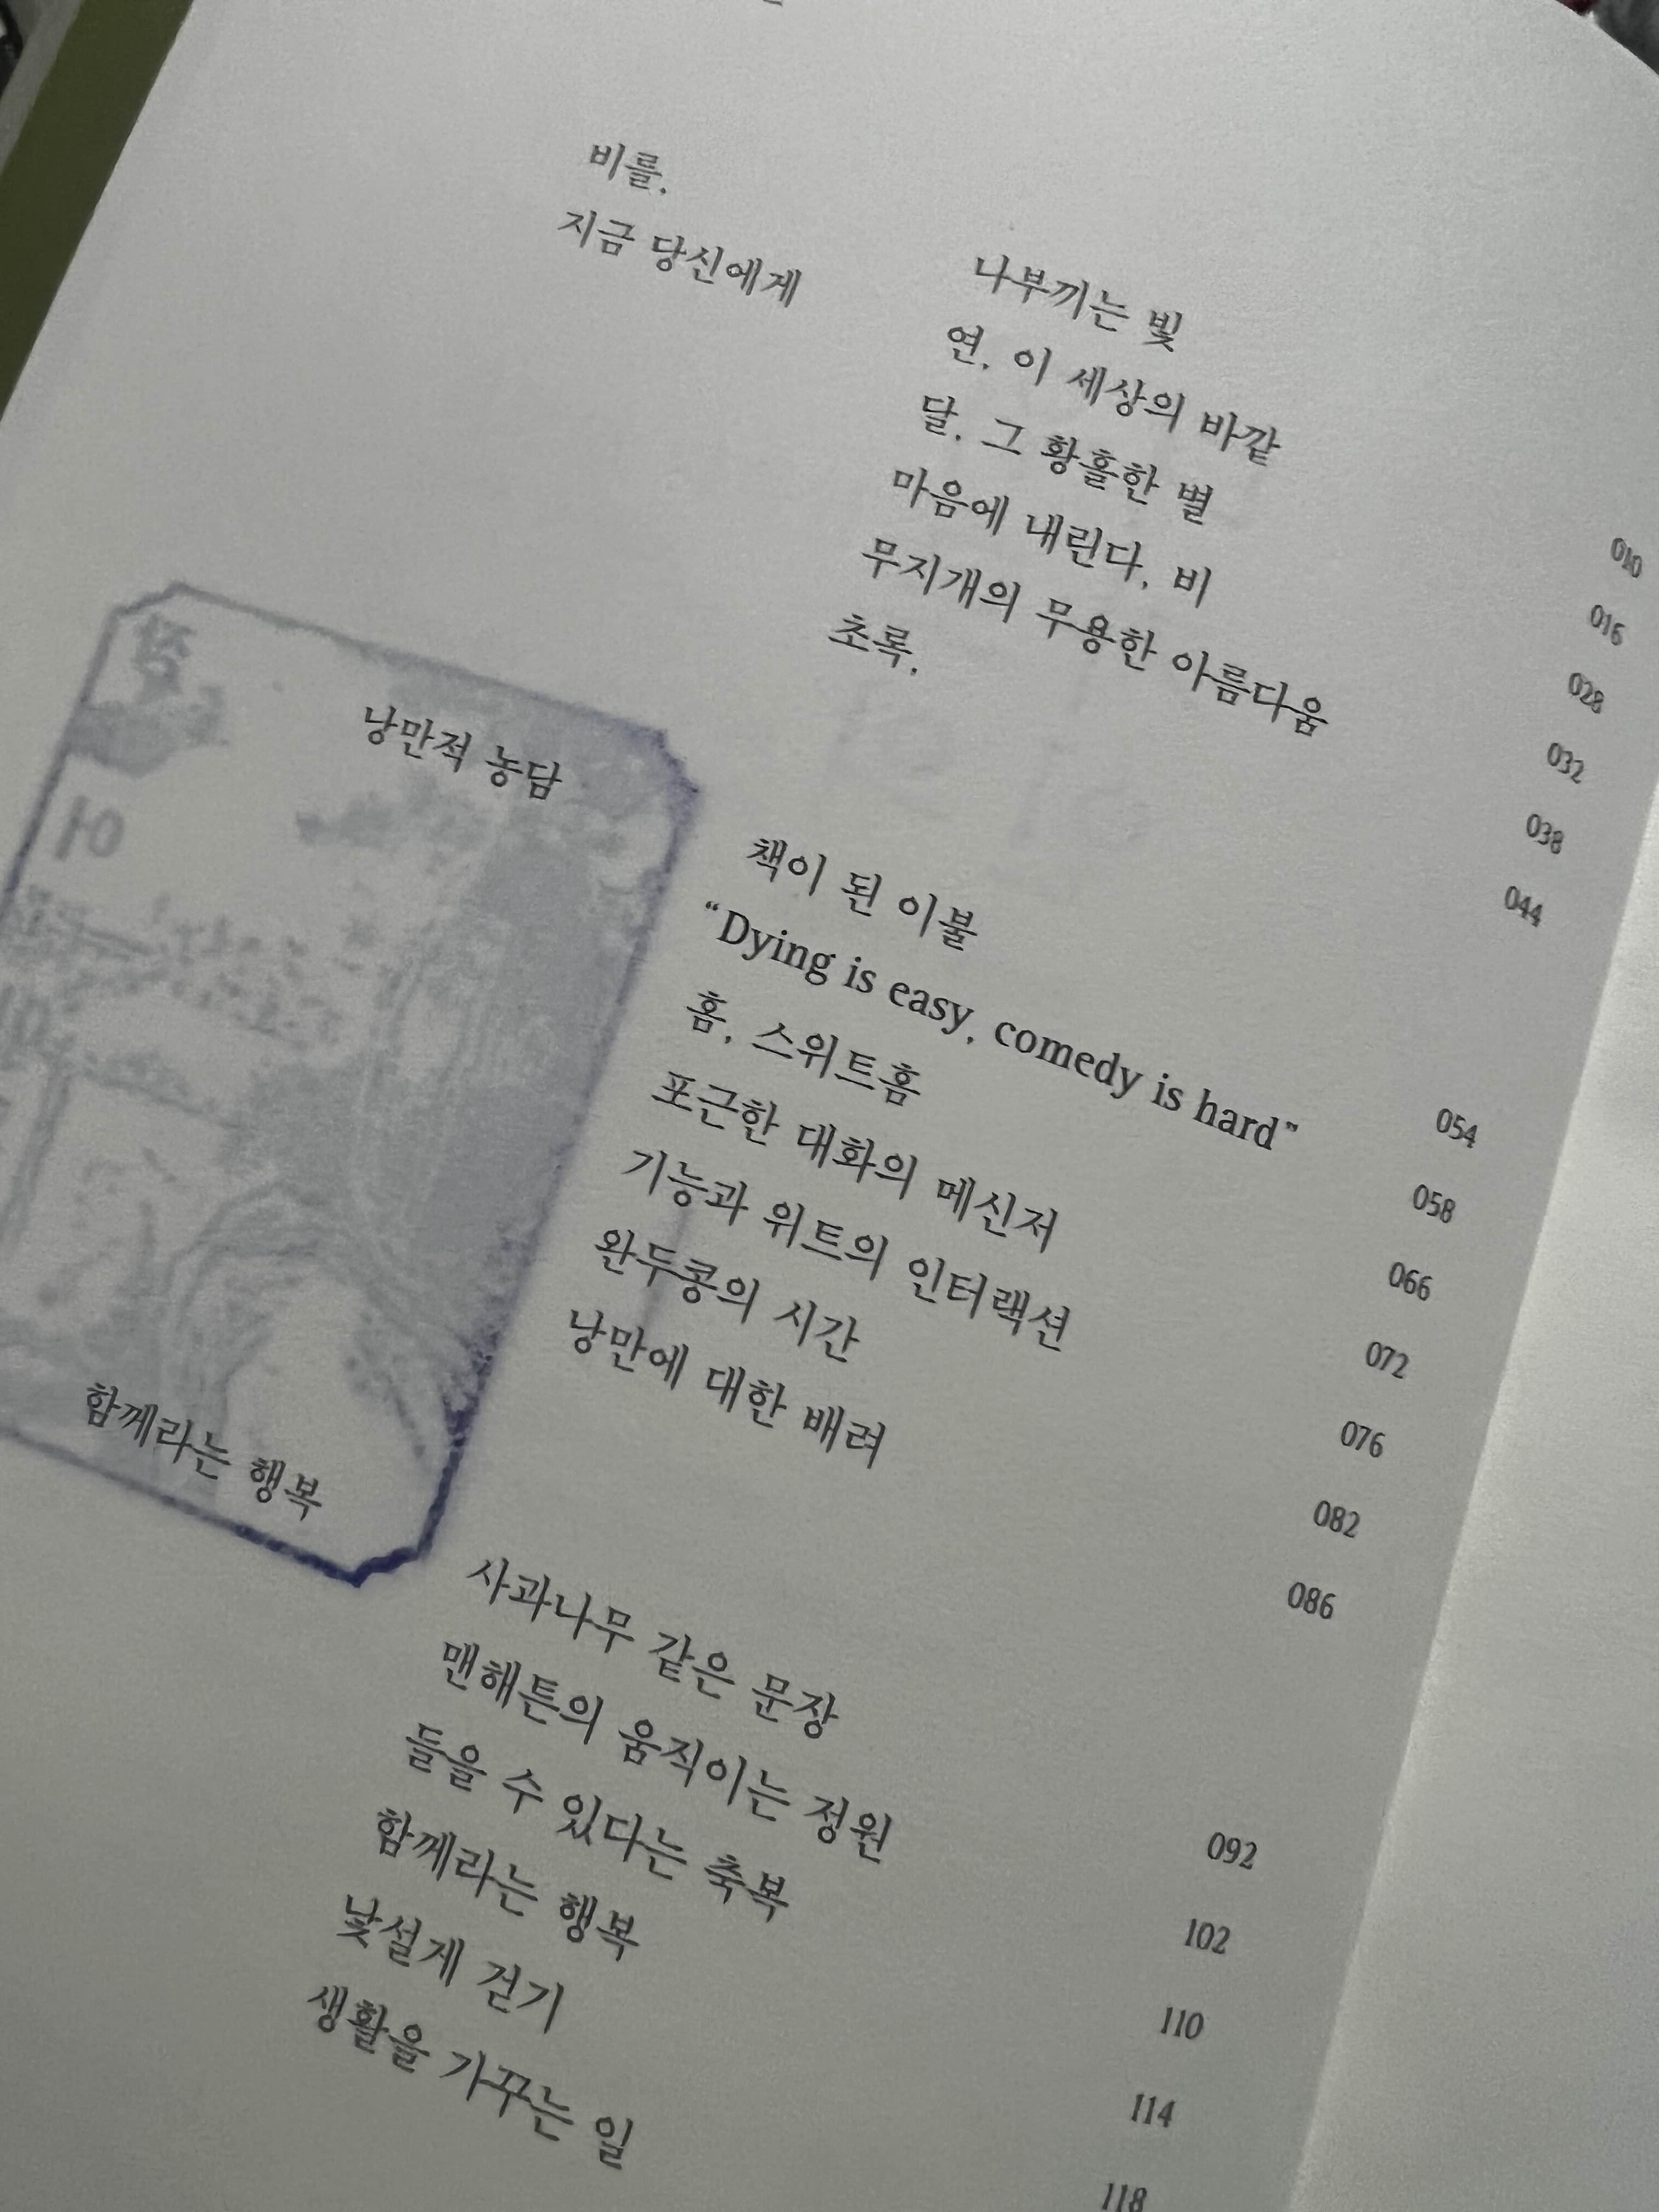 비를,
지금 당신에게
나부끼는 빛 010
연, 이 세상의 바깥 016
달, 그 황홀한 별 028
마음에 내린다, 비 032
무지개의 무용한 아름다움 038
초록, 044
낭만적 농담
책이 된 이불 054
“Dying is easy, comedy is hard” 058
홈, 스위트홈 066
포근한 대화의 메신저 072
기능과 위트의 인터랙션 076
완두콩의 시간 082
낭만에 대한 배려 086
함께라는 행복
사과나무 같은 문장 092
맨해튼의 움직이는 정원 102
들을 수 있다는 축복 110
함께라는 행복 114
낯설게 걷기 118
생활을 가꾸는 일